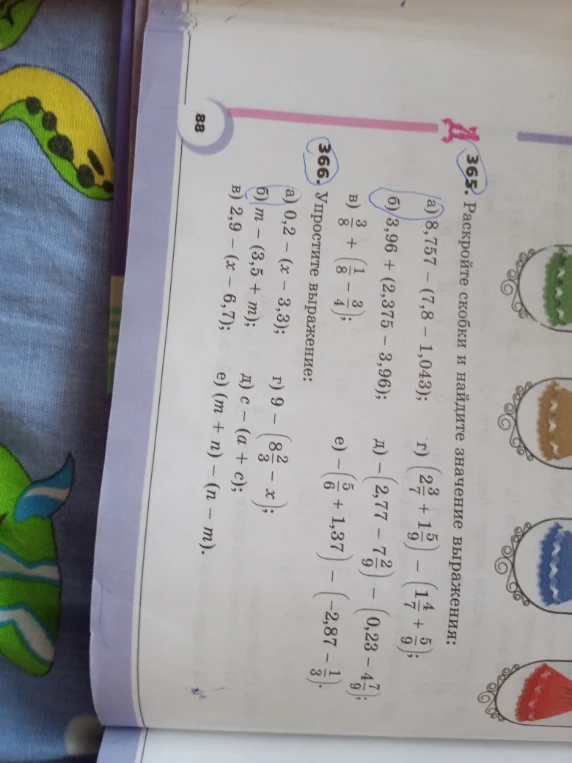 365. Раскройте скобки и найдите значение выражения:
а) 8,757 − (7,8 − 1,043);
г) (2 3/7 + 1 5/9) − (1 4/7 + 5/9);
б) 3,96 + (2,375 − 3,96);
д) −(2,77 − 7 2/9) − (0,23 − 4 7/9);
в) 3/8 + (1/8 − 3/4);
е) −(5/6 + 1,37) − (−2,87 − 1/3).
366. Упростите выражение:
а) 0,2 − (x − 3,3);
г) 9 − (8 2/3 − x);
б) m − (3,5 + m);
д) c − (a + c);
в) 2,9 − (x − 6,7);
е) (m + n) − (n − m).
88